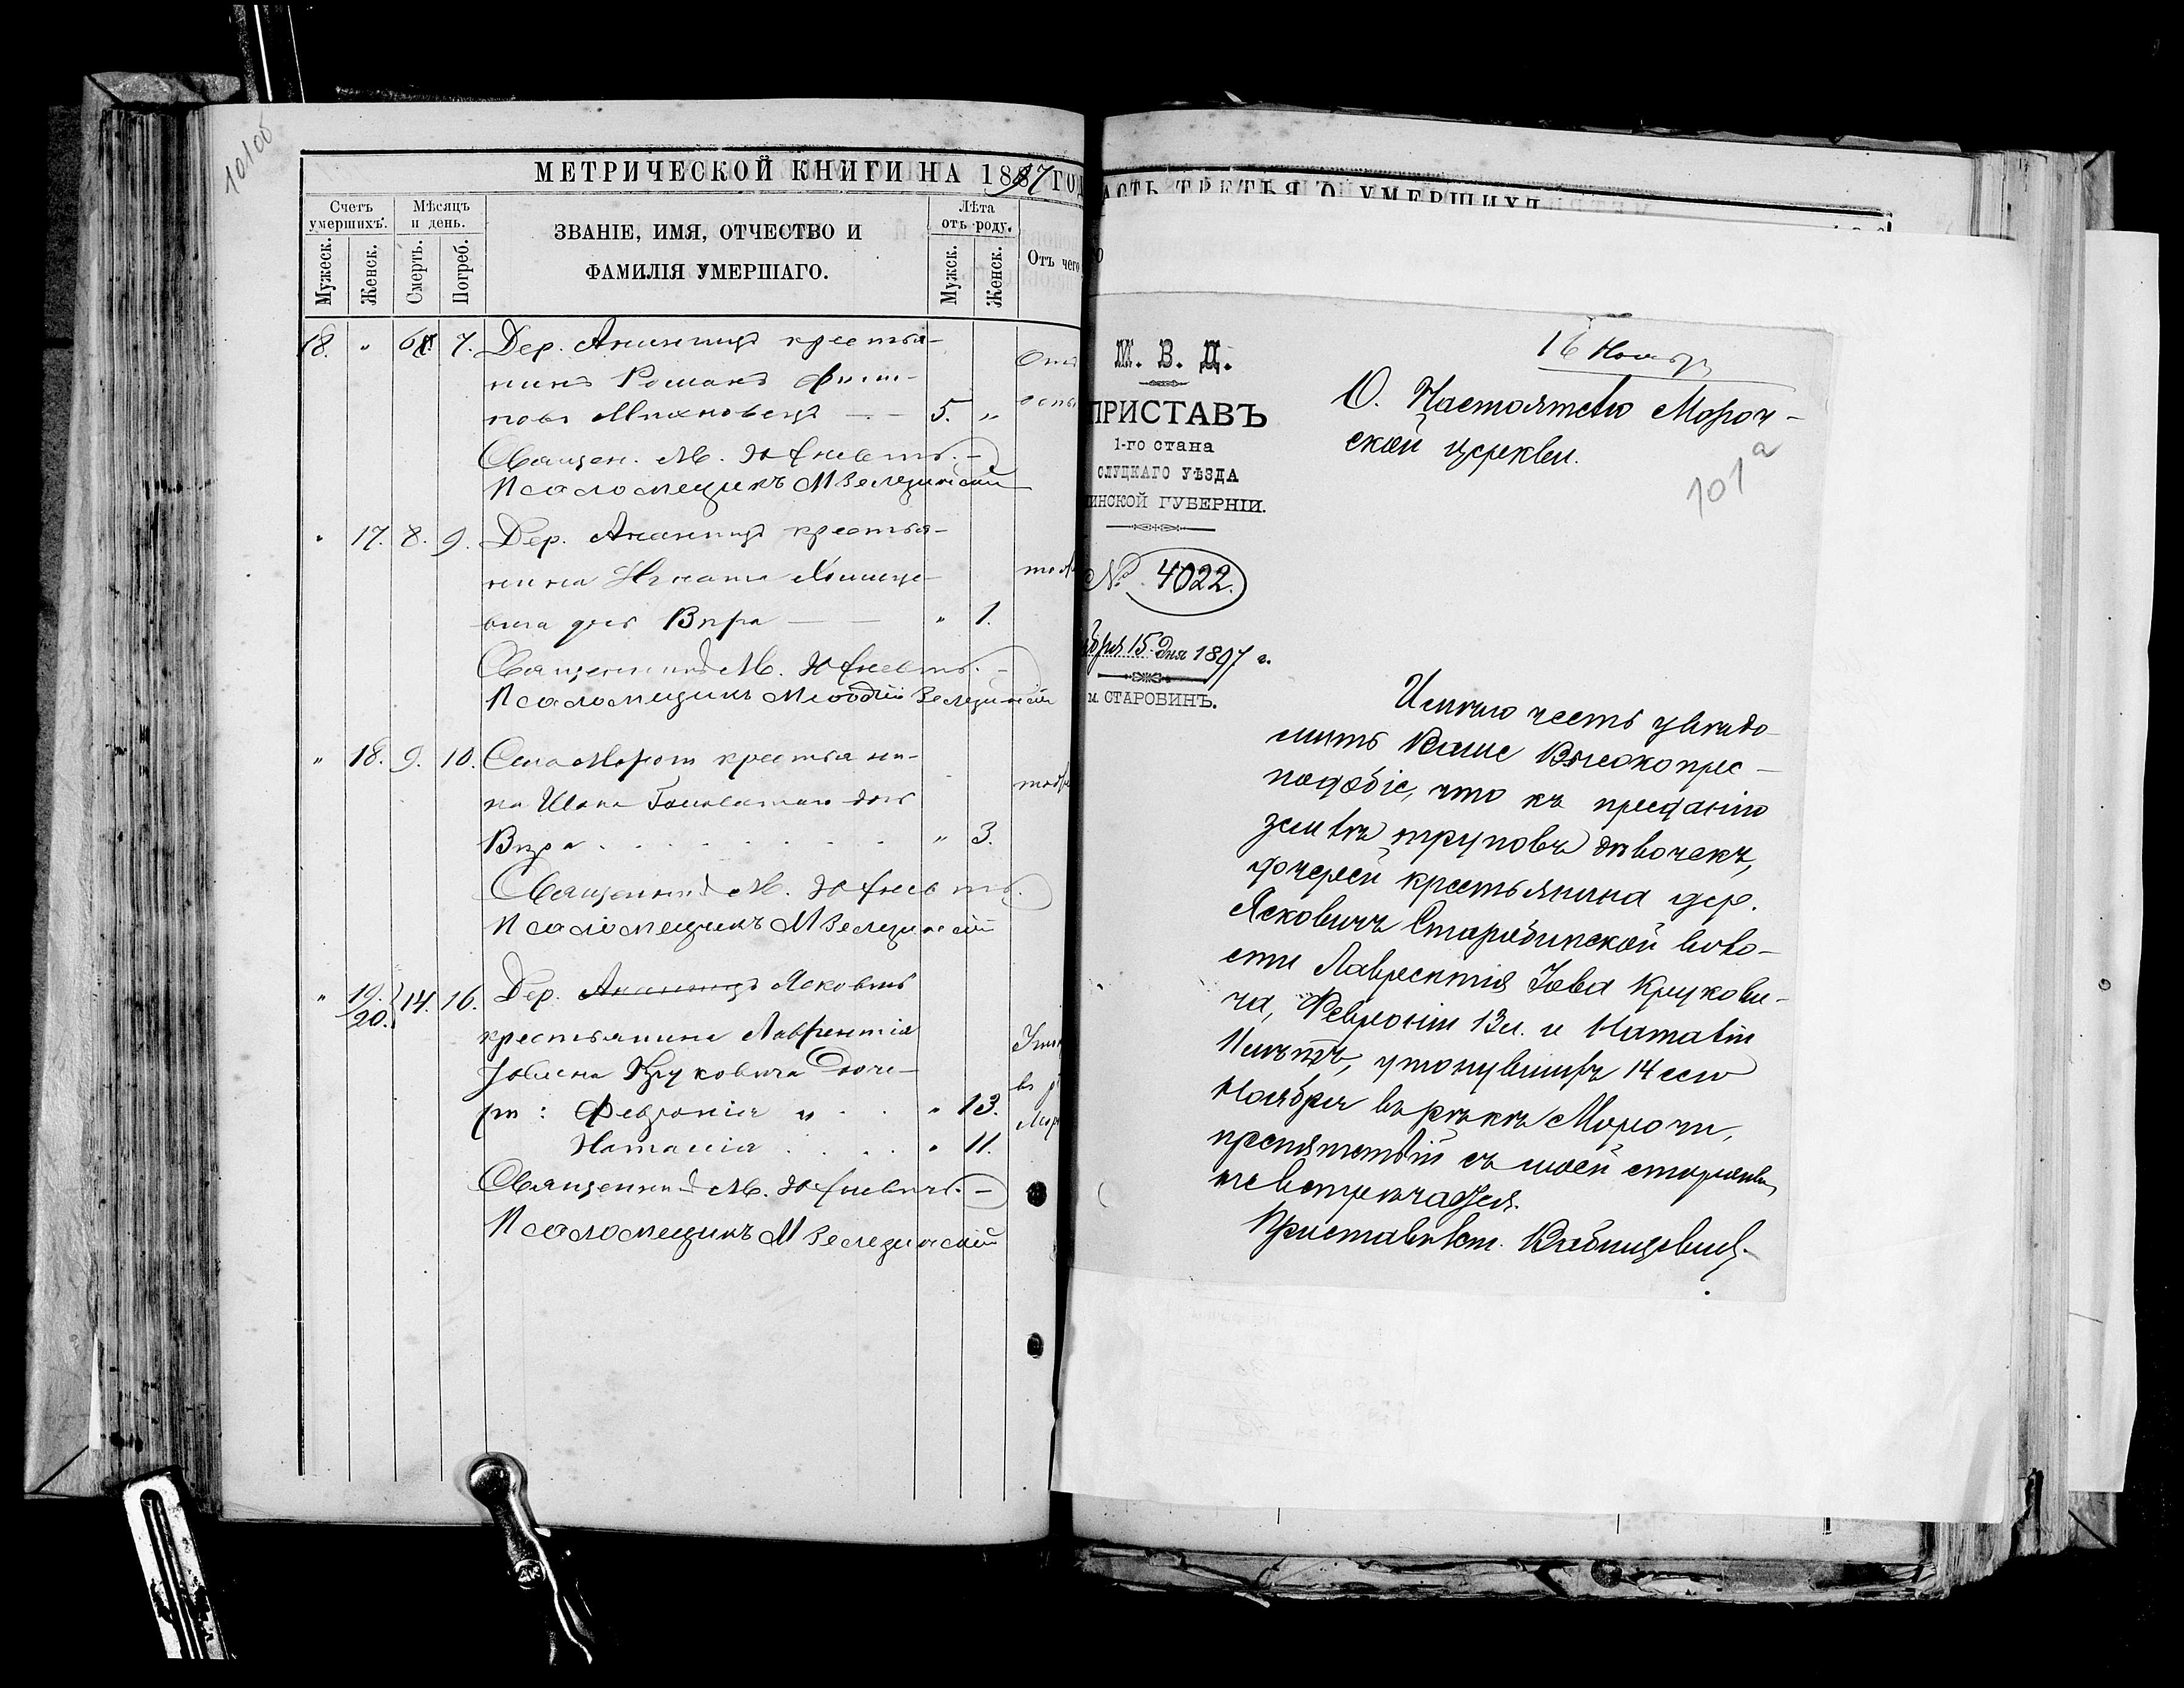 101об
МЕТРИЧЕСКОЙ КНИГИ НА 1897 ГОД
Счетъ умершихъ.
Мужеск.
Женск.
Мѣсяцъ и день.
Смерть.
Погреб.
ЗВАНІЕ, ИМЯ, ОТЧЕСТВО И
ФАМИЛІЯ УМЕРШАГО.
Лѣта отъ роду.
Мужск.
Женск.
Отъ чего
18. " 6. 7. Дер. Ананчицъ крестья-
нинъ Романъ Филип-
повъ Михновецъ — 5. "
Священ. М.
Псаломщикъ М Зелезинскій
" 17. 8. 9. Дер. Ананчицъ крестья-
нина Игната
дочь Вѣра — " 1.
Священникъ М.
Псаломщикъ Меѳодій Зелезинскій
" 18. 9. 10. Села Морочь крестьяни-
на Ивана дочь
Вѣра . . . . . " 3.
Священникъ М.
Псаломщикъ М Зелезинскій
" 19. 20. 14. 16. Дер. Ананчицъ Ясковичъ
крестьянина Лаврентія
Іовлева Круковича доче-
ри: Февронія и . . " 13.
Наталія . . . . " 11.
Священникъ М.
Псаломщикъ М Зелезинскій
АСТЬ ТРЕТЬЯ О УМЕРШИХЪ
М. В. Д.
ПРИСТАВЪ
1-го стана
СЛУЦКАГО УѢЗДА
ИНСКОЙ ГУБЕРНІИ.
№ 4022.
бря 15 дня 1897 г.
м. СТАРОБИНЪ.
16 Ноябр
О. Настоятелю Мороч-
ской церкви.
101а
Имѣю честь увѣдо-
мить Ваше Высокопре-
подобіе, что къ преданію
землѣ труповъ дѣвочекъ,
дочерей крестьянина дер.
Ясковичъ Старобинской воло-
сти Лаврентія Іова Крукови-
ча, Февроніи 13 л. и Наталіи
11 лѣтъ, утонувшихъ 14 сего
Ноября въ рѣкѣ Морочи,
препятствій съ моей стороны
не встрѣчается.
Приставъ